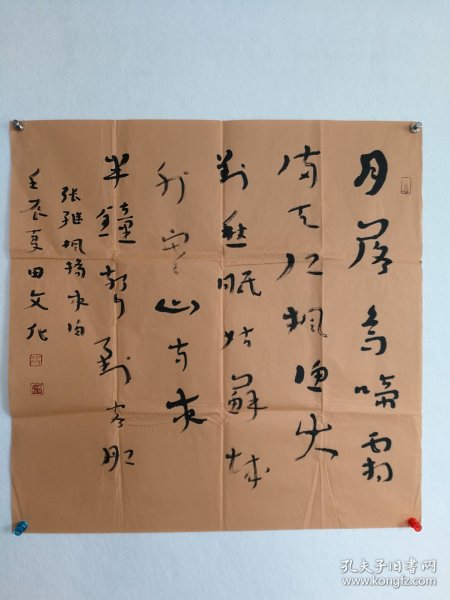 月落烏啼霜
滿天江楓漁火
對愁眠姑蘇城
外寒山寺夜
半鐘聲到客船
张继枫橋夜泊
壬辰夏田文化
孔夫子旧书网
www.kongfz.com